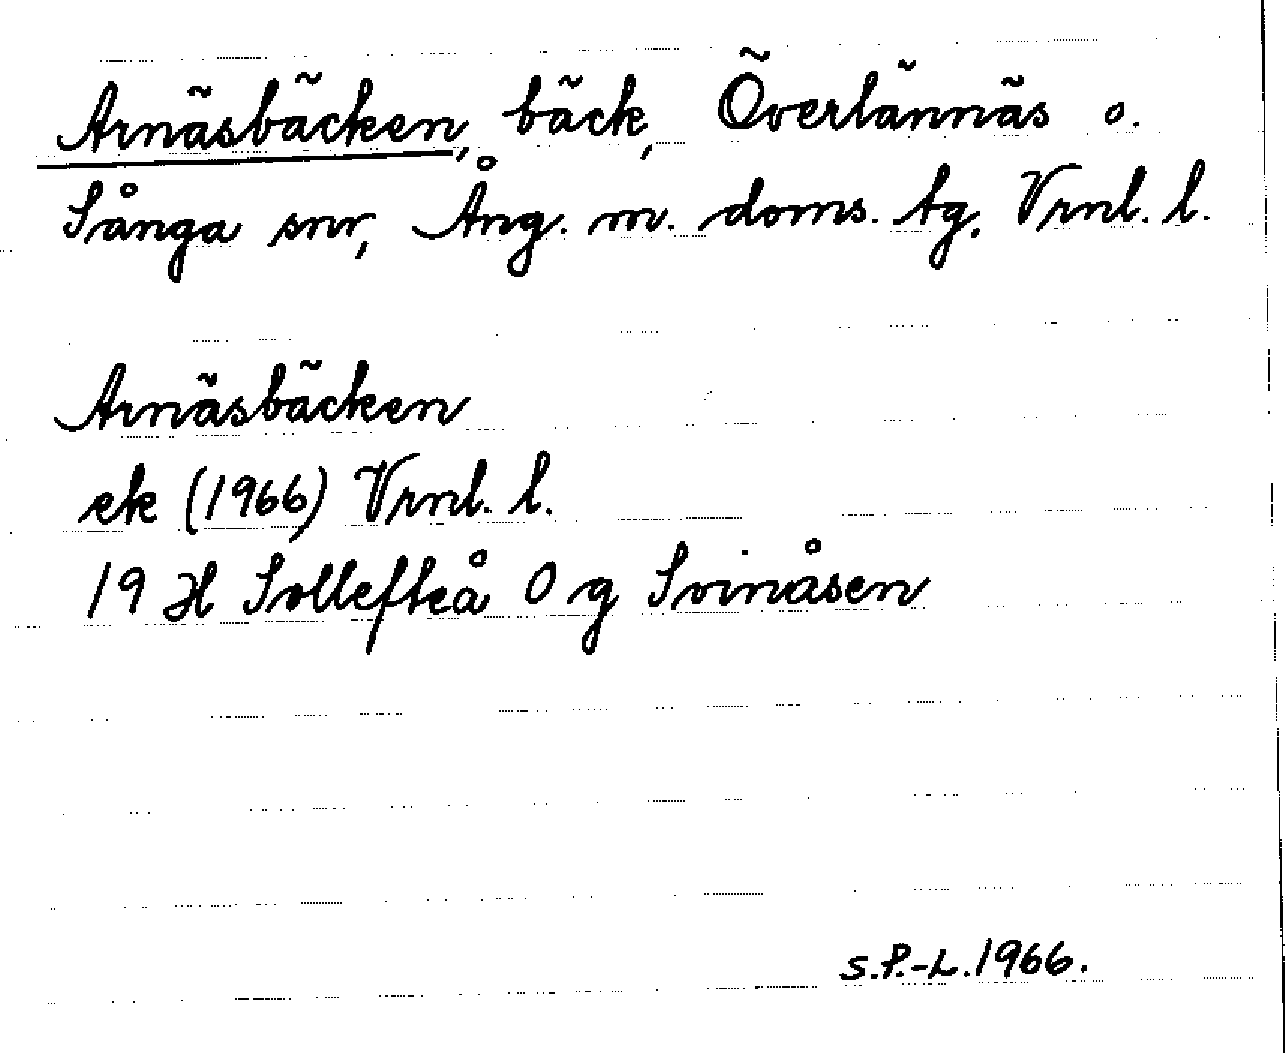 Arnäsbäcken, bäck, Överlännäs o.
Sånga snr, Ång. m. doms. tg. Vrnl. l.
Arnäsbäcken
ek (1966) Vrnl. l.
19 H Sollefteå 0 g Svinåsen
S.P.-L. 1966.